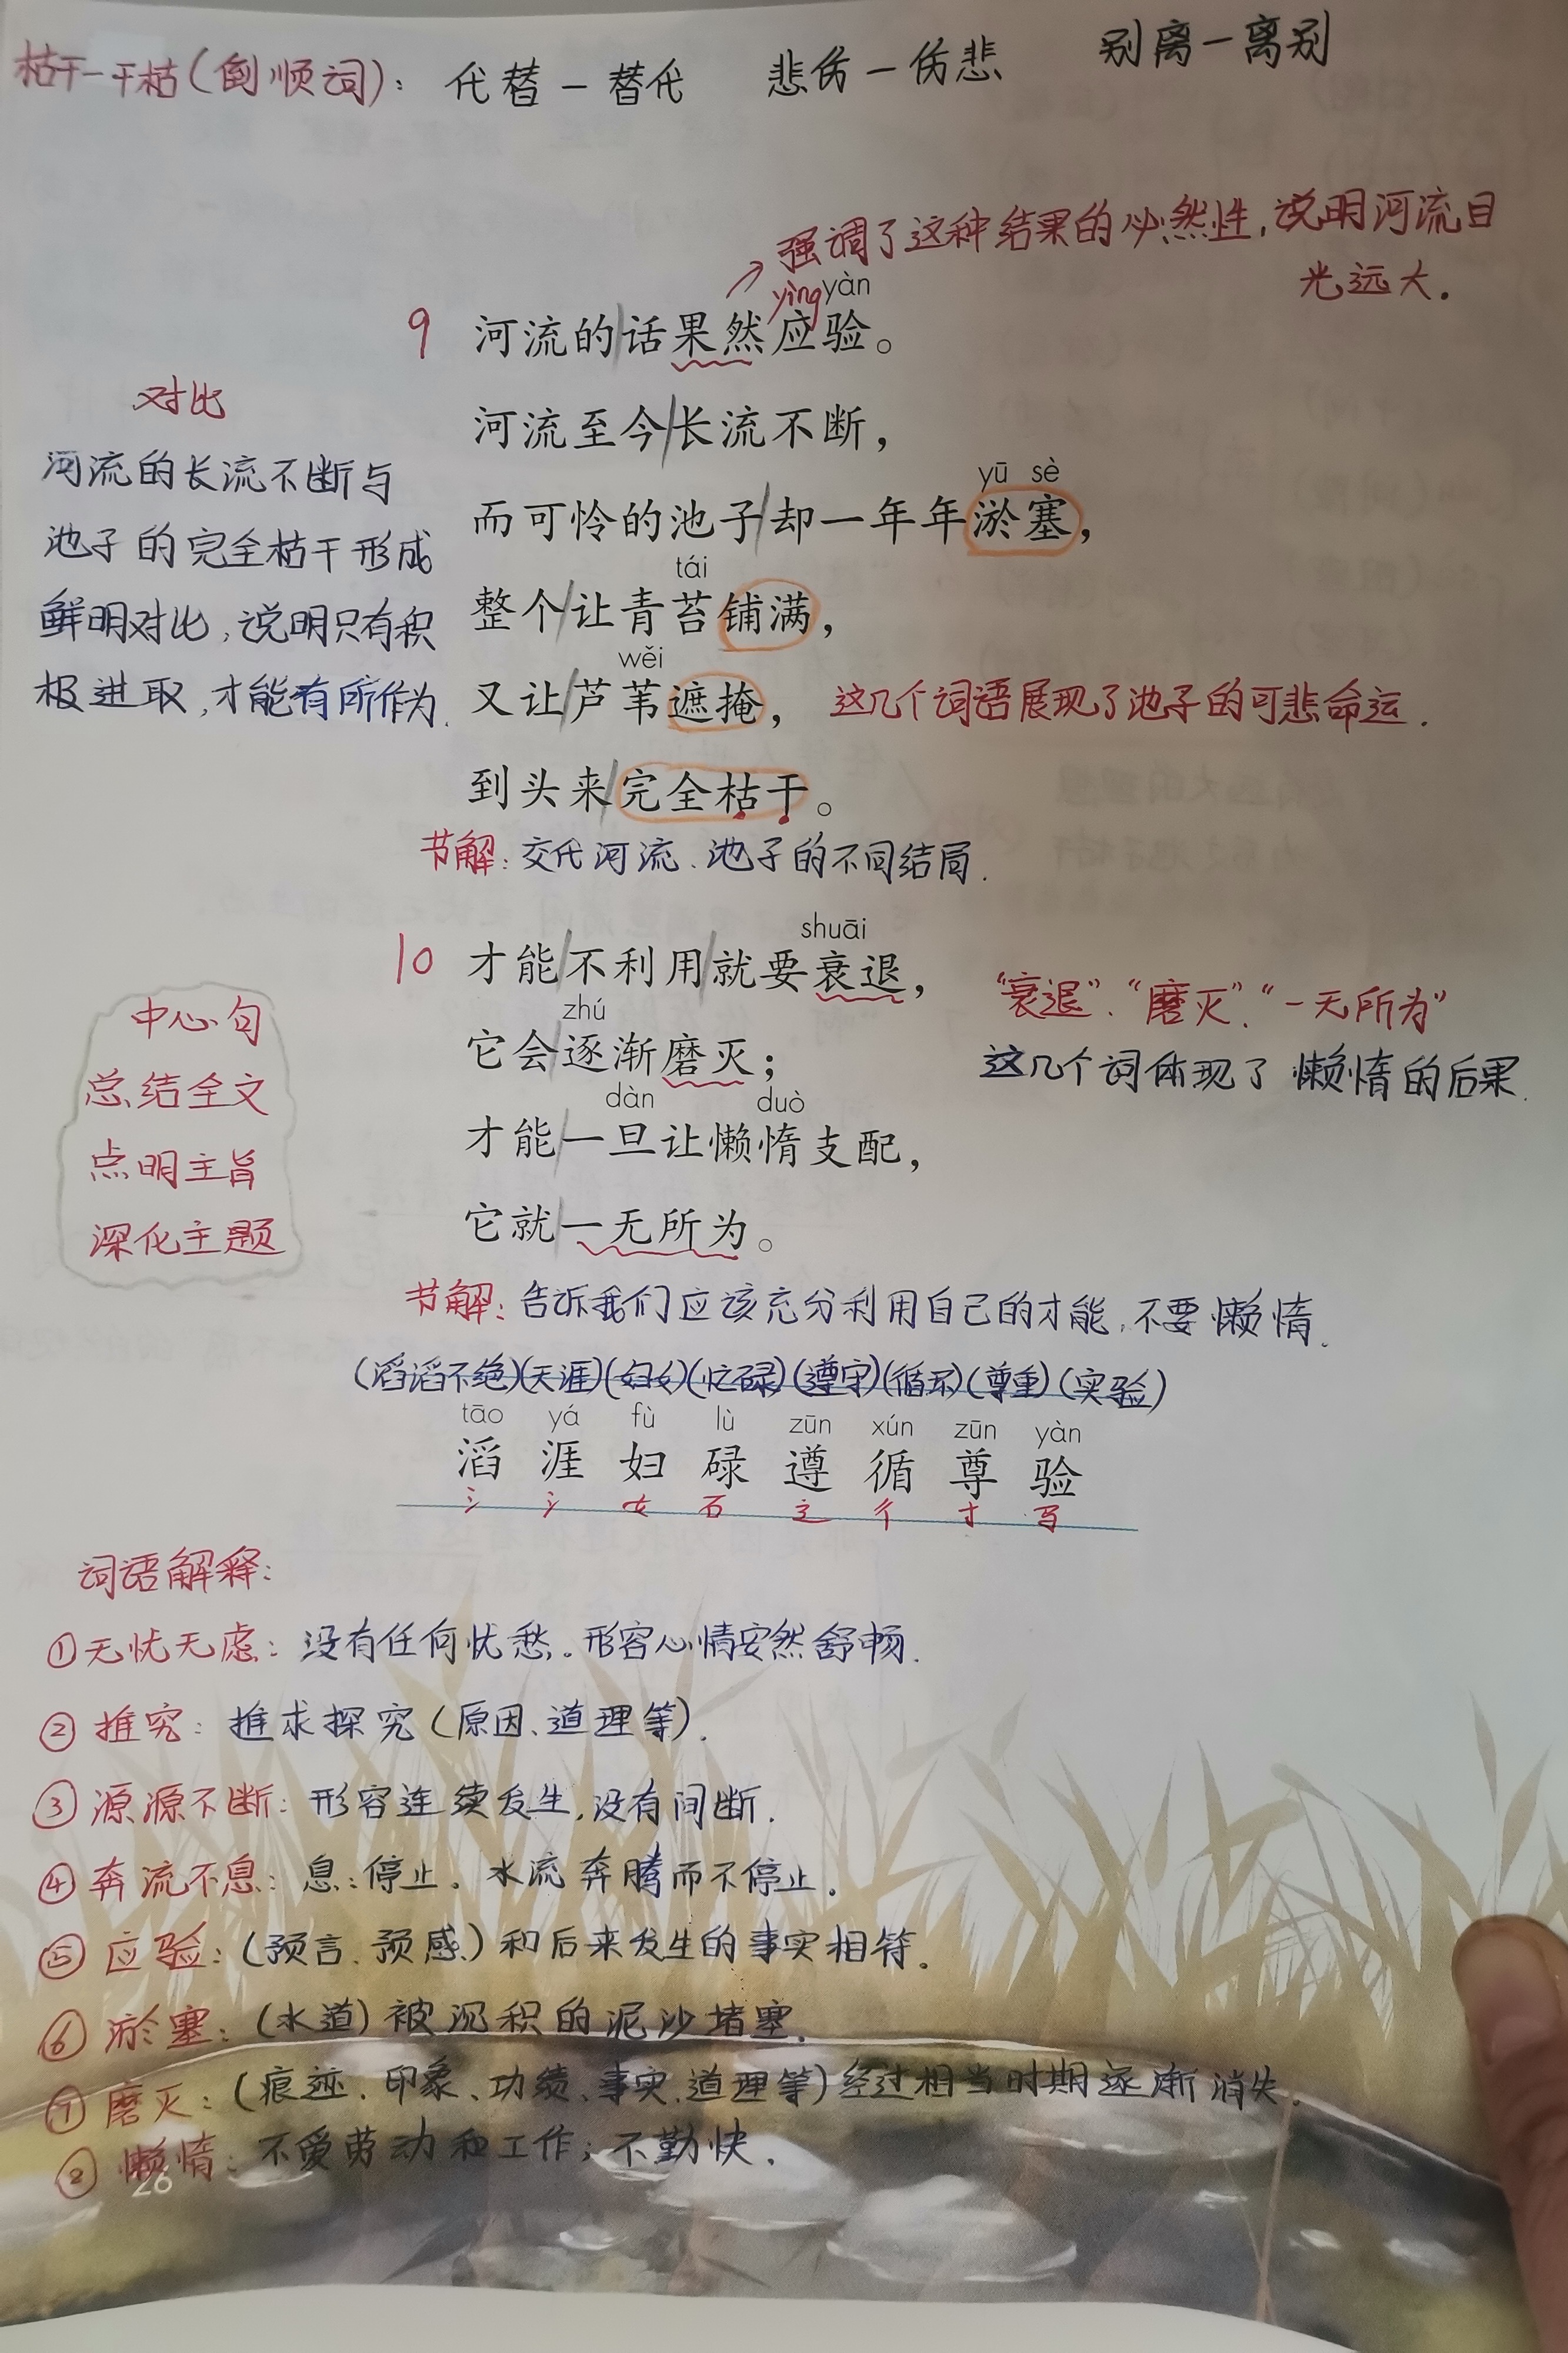 枯干—干枯(倒顺词)： 代替—替代 悲伤—伤悲 别离—离别
强调了这种结果的必然性,说明河流目
光远大.
yìng yàn
9 河流的话果然应验。
河流至今长流不断，
yū sè
而可怜的池子却一年年淤塞，
tái
整个让青苔铺满，
wěi
又让芦苇遮掩， 这几个词语展现了池子的可悲命运.
到头来完全枯干。
节解: 交代河流、池子的不同结局.
对比
河流的长流不断与
池子的完全枯干形成
鲜明对比,说明只有积
极进取,才能有所作为.
shuāi
10 才能不利用就要衰退，
zhú
它会逐渐磨灭；
dàn duò
才能一旦让懒惰支配，
它就一无所为。
"衰退"、"磨灭"、"一无所为"
这几个词体现了懒惰的后果.
中心句
总结全文
点明主旨
深化主题
节解: 告诉我们应该充分利用自己的才能,不要懒惰.
(滔滔不绝)(天涯)(妇女)(忙碌)(遵守)(循环)(尊重)(实验)
tāo yá fù lù zūn xún zūn yàn
滔 涯 妇 碌 遵 循 尊 验
氵 氵 女 石 辶 彳 寸 马
词语解释:
①无忧无虑: 没有任何忧愁。形容心情安然舒畅.
②推究: 推求探究(原因、道理等).
③源源不断: 形容连续发生,没有间断.
④奔流不息: 息:停止。水流奔腾而不停止.
⑤应验: (预言、预感)和后来发生的事实相符.
⑥淤塞: (水道)被沉积的泥沙堵塞.
⑦磨灭: (痕迹、印象、功绩、事实、道理等)经过相当时期逐渐消失.
⑧懒惰: 不爱劳动和工作;不勤快.
28